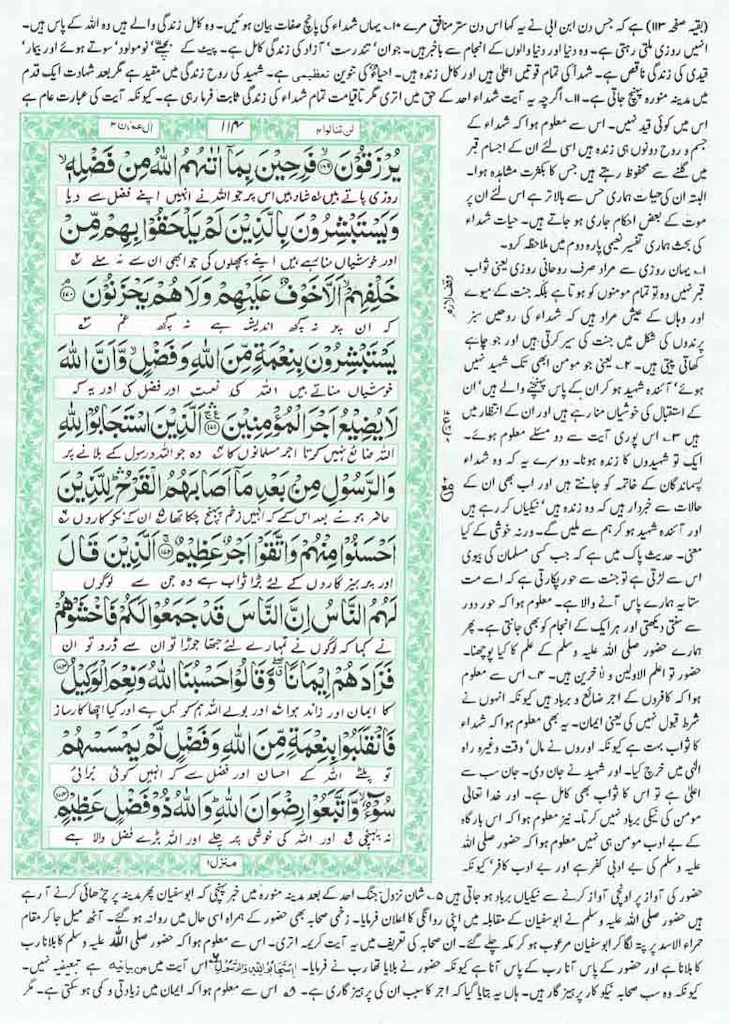 (بقیہ صفحہ ۱۱۳) ہے کہ جس دن ابن ابی نے یہ کہا اس دن ستر منافق مرے ۱۰۔ یہاں شہداء کی پانچ صفات بیان ہوئیں۔ وہ کامل زندگی والے ہیں وہ اللہ کے پاس ہیں۔
انہیں روزی ملتی رہتی ہے۔ وہ دنیا اور دنیا والوں کے انجام سے باخبر ہیں۔ جوان' تندرست' آزاد کی زندگی کامل ہے۔ پیٹ کے بچے' نومولود' سوتے ہوئے اور بیمار'
قیدی کی زندگی ناقص ہے۔ شہدا کی تمام قوتیں اعلیٰ ہیں اور کامل زندہ ہیں۔ احیاءٌ کی تنوین تعظیمی ہے۔ شہید کی روح زندگی میں مقید ہے مگر بعد شہادت ایک قدم
میں مدینہ منورہ پہنچ جاتی ہے۔ ۱۱۔ اگرچہ یہ آیت شہداء احد کے حق میں اتری مگر تاقیامت تمام شہداء کی زندگی ثابت فرما رہی ہے۔ کیونکہ آیت کی عبارت عام ہے
اس میں کوئی قید نہیں۔ اس سے معلوم ہوا کہ شہداء کے
جسم و روح دونوں ہی زندہ ہیں اسی لئے ان کے اجسام قبر
میں گلنے سے محفوظ رہتے ہیں جس کا بکثرت مشاہدہ ہوا۔
البتہ ان کی حیات ہماری حس سے بالاتر ہے اس لئے ان پر
موت کے بعض احکام جاری ہو جاتے ہیں۔ حیات شہداء
کی بحث ہماری تفسیر نعیمی پارہ دوم میں ملاحظہ کرو۔
۱۔ یہاں روزی سے مراد صرف روحانی روزی یعنی ثواب
قبر نہیں وہ تو تمام مومنوں کو ہوتا ہے بلکہ جنت کے میوے
اور وہاں کے عیش مراد ہیں کہ شہداء کی روحیں سبز
پرندوں کی شکل میں جنت کی سیر کرتی ہیں اور جو چاہے
کھاتی پیتی ہیں۔ ۲۔ یعنی جو مومن ابھی تک شہید نہیں
ہوئے' آئندہ شہید ہو کر ان کے پاس پہنچنے والے ہیں' ان
کے استقبال کی خوشیاں منا رہے ہیں اور ان کے انتظار میں
ہیں ۳۔ اس پوری آیت سے دو مسئلے معلوم ہوئے۔
ایک تو شہیدوں کا زندہ ہونا۔ دوسرے یہ کہ وہ شہداء
پسماندگان کے خاتمہ کو جانتے ہیں اور اب بھی ان کے
حالات سے خبردار ہیں کہ وہ زندہ ہیں' نیکیاں کر رہے ہیں
اور آئندہ شہید ہو کر ہم سے ملیں گے۔ ورنہ خوشی کے کیا
معنی۔ حدیث پاک میں ہے کہ جب کسی مسلمان کی بیوی
اس سے لڑتی ہے تو جنت سے حور پکارتی ہے کہ اسے مت
ستا یہ ہمارے پاس آنے والا ہے۔ معلوم ہوا کہ حور دور
سے سنتی دیکھتی اور ہر ایک کے انجام کو بھی جانتی ہے۔ پھر
ہمارے حضور صلی اللہ علیہ وسلم کے علم کا کیا پوچھنا۔
حضور تو اعلم الاولین و لآخرین ہیں۔ ۴۔ اس سے معلوم
ہوا کہ کافروں کے اجر ضائع و برباد ہیں کیونکہ انہوں نے
شرط قبول نہیں کی یعنی ایمان۔ یہ بھی معلوم ہوا کہ شہداء
کا ثواب بہت ہے کیونکہ اوروں نے مال' وقت وغیرہ راہ
الٰہی میں خرچ کیا۔ اور شہید نے جان دی۔ جان سب سے
اعلیٰ ہے تو اس کا ثواب بھی کامل ہے۔ اور خدا تعالیٰ
مومن کی نیکی برباد نہیں کرتا۔ نیز معلوم ہوا کہ اس بارگاہ
کے بے ادب مومن ہی نہیں معلوم ہوا کہ حضور صلی اللہ
علیہ وسلم کی بے ادبی کفر ہے اور بے ادب کافر' کیونکہ
لن تنالوا ۴
۱۱۴
اٰل عمرٰن ۳
يُرْزَقُوْنَ ۙ﴿۱۶۹﴾ فَرِحِيْنَ بِمَاۤ اٰتٰىهُمُ اللّٰهُ مِنْ فَضْلِهٖ ۙ
روزی پاتے ہیں شاد ہیں اس پر جو اللہ نے انہیں اپنے فضل سے دیا
وَيَسْتَبْشِرُوْنَ بِالَّذِيْنَ لَمْ يَلْحَقُوْا بِهِمْ مِّنْ
اور خوشیاں منا رہے ہیں اپنے پچھلوں کی جو ابھی ان سے نہ ملے
خَلْفِهِمْ ۙ اَلَّا خَوْفٌ عَلَيْهِمْ وَلَا هُمْ يَحْزَنُوْنَ ﴿۱۷۰﴾
کہ ان پر نہ کچھ اندیشہ ہے نہ کچھ غم
يَسْتَبْشِرُوْنَ بِنِعْمَةٍ مِّنَ اللّٰهِ وَفَضْلٍ ۙ وَّاَنَّ اللّٰهَ
خوشیاں مناتے ہیں اللہ کی نعمت اور فضل کی اور یہ کہ
لَا يُضِيْعُ اَجْرَ الْمُؤْمِنِيْنَ ﴿۱۷۱﴾ اَلَّذِيْنَ اسْتَجَابُوْا لِلّٰهِ
اللہ ضائع نہیں کرتا اجر مسلمانوں کا وہ جو اللہ و رسول کے بلانے پر
وَالرَّسُوْلِ مِنْۢ بَعْدِ مَاۤ اَصَابَهُمُ الْقَرْحُ ۛ لِلَّذِيْنَ
حاضر ہوئے بعد اس کے کہ انہیں زخم پہنچ چکا تھا ان کے نکوکاروں
اَحْسَنُوْا مِنْهُمْ وَاتَّقَوْا اَجْرٌ عَظِيْمٌ ﴿۱۷۲﴾ اَلَّذِيْنَ قَالَ
اور پرہیزگاروں کے لئے بڑا ثواب ہے وہ جن سے لوگوں
لَهُمُ النَّاسُ اِنَّ النَّاسَ قَدْ جَمَعُوْا لَكُمْ فَاخْشَوْهُمْ
نے کہا کہ لوگوں نے تمہارے لئے جتھا جوڑا تو ان سے ڈرو تو ان
فَزَادَهُمْ اِيْمَانًا ۖ وَّقَالُوْا حَسْبُنَا اللّٰهُ وَنِعْمَ الْوَكِيْلُ ﴿۱۷۳﴾
کا ایمان اور زائد ہوا اور بولے اللہ ہم کو بس ہے اور کیا اچھا کارساز
فَانْقَلَبُوْا بِنِعْمَةٍ مِّنَ اللّٰهِ وَفَضْلٍ لَّمْ يَمْسَسْهُمْ
تو پلٹے اللہ کے احسان اور فضل سے کہ انہیں کوئی برائی
سُوْٓءٌ ۙ وَّاتَّبَعُوْا رِضْوَانَ اللّٰهِ ۗ وَاللّٰهُ ذُوْ فَضْلٍ عَظِيْمٍ ﴿۱۷۴﴾
نہ پہنچی اور اللہ کی خوشی پر چلے اور اللہ بڑے فضل والا ہے
منزل ۱
وقف لازم
حضور کی آواز پر اونچی آواز کرنے سے نیکیاں برباد ہو جاتی ہیں ۵۔ شان نزول۔ جنگ احد کے بعد مدینہ منورہ میں خبر پہنچی کہ ابو سفیان پھر مدینہ پر چڑھائی کرنے آ رہے
ہیں حضور صلی اللہ علیہ وسلم نے ابو سفیان کے مقابلہ میں اپنی روانگی کا اعلان فرمایا۔ زخمی صحابہ بھی حضور کے ہمراہ اسی حال میں روانہ ہو گئے۔ آٹھ میل جا کر مقام
حمراء الاسد پر پتہ لگا کر ابو سفیان مرعوب ہو کر مکہ چلے گئے۔ ان صحابہ کی تعریف میں یہ آیت کریمہ اتری۔ اس سے معلوم ہوا کہ حضور صلی اللہ علیہ وسلم کا بلانا رب
کا بلانا ہے اور حضور کے پاس آنا رب کے پاس آنا ہے کیونکہ حضور نے بلایا تھا رب نے فرمایا۔ اِسْتَجَابُوْا لِلّٰهِ وَالرَّسُوْلِ ۶۔ اس آیت میں من بیانیہ ہے تبعیضیہ نہیں۔
کیونکہ وہ سب صحابہ نیکو کار پرہیزگار ہیں۔ ہاں یہ بتایا گیا کہ اجر کا سبب ان کی پرہیزگاری ہے۔ اس سے معلوم ہوا کہ ایمان میں زیادتی و کمی ہو سکتی ہے۔ مگر